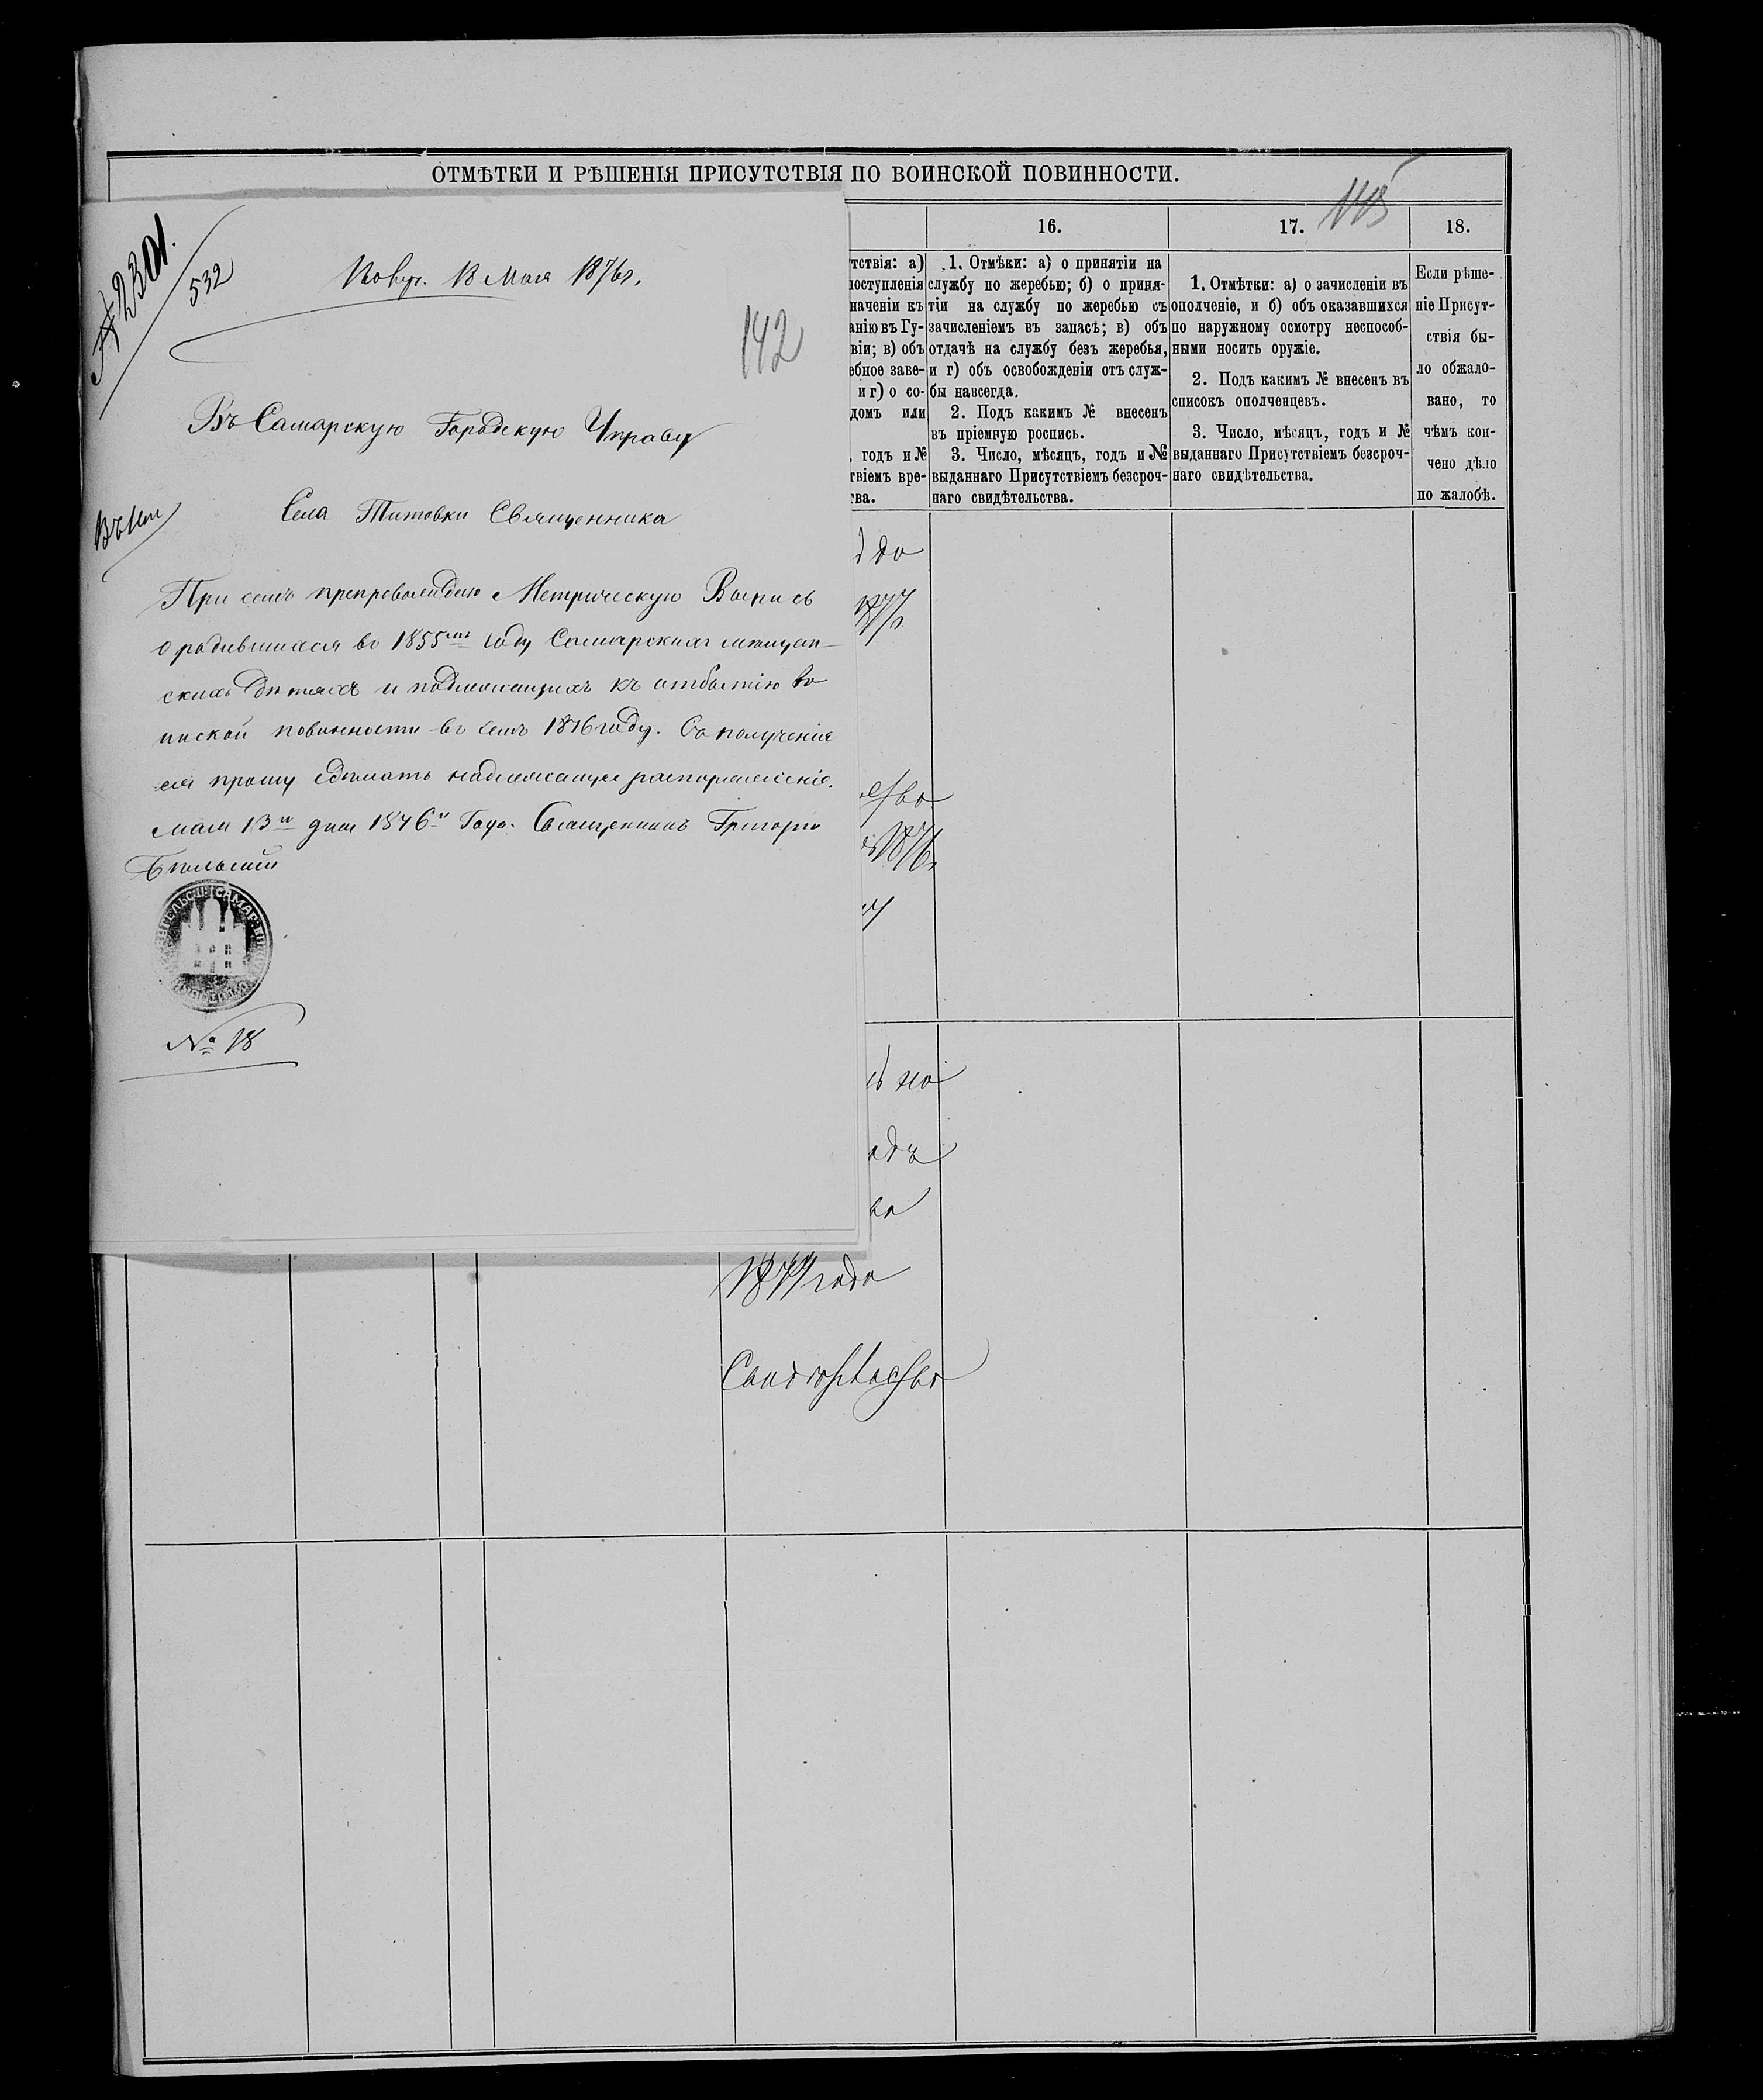 ОТМѢТКИ И РѢШЕНІЯ ПРИСУТСТВІЯ ПО ВОИНСКОЙ ПОВИННОСТИ.
145
№ 2301.
532
18 Мая 1876 г.
142
Въ Самарскую Городскую Управу
Села Титовки Священника
При семъ препровождаю Метрическую Выпись
о родившихся въ 1855мъ году Самарскихъ мѣщан-
скихъ дѣтяхъ и подлежащихъ къ отбытію во
инской повинности въ семъ 1876 году. О полученіи
ея прошу сдѣлать надлежащее распоряженіе.
Мая 13го дня 1876го Года. Священникъ Григорій
№ 18
16.
17.
18.
тствія: а)
поступленія
наченіи къ
анію въ Гу-
віи; в) объ
ебное заве-
и г) о со-
домъ или
, годъ и №
твіемъ вре-
ва.
1. Отмѣки: а) о принятіи на
службу по жеребью; б) о приня-
тіи на службу по жеребью съ
зачисленіемъ въ запасъ; в) объ
отдачѣ на службу безъ жеребья,
и г) объ освобожденіи отъ служ-
бы навсегда.
2. Подъ какимъ № внесенъ
въ пріемную роспись.
3. Число, мѣсяцъ, годъ и №
выданнаго Присутствіемъ безсроч-
наго свидѣтельства.
1. Отмѣтки: а) о зачисленіи въ
ополченіе, и б) объ оказавшихся
по наружному осмотру неспособ-
ными носить оружіе.
2. Подъ какимъ № внесенъ въ
списокъ ополченцевъ.
3. Число, мѣсяцъ, годъ и №
выданнаго Присутствіемъ безсроч-
наго свидѣтельства.
Если рѣше-
ніе Присут-
ствія бы-
ло обжало-
вано, то
чѣмъ кон-
чено дѣло
по жалобѣ.
до
1877
1876
на
1877 года